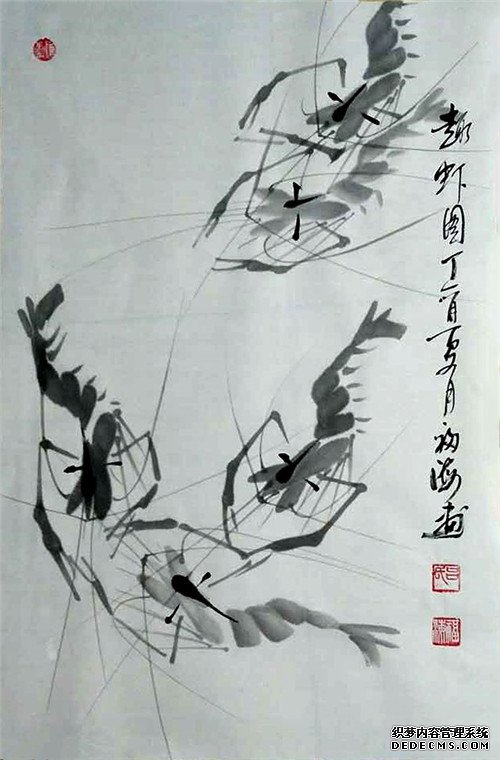 趣虾图丁酉夏月福海画
福海
织梦内容管理系统
DEDECMS.COM